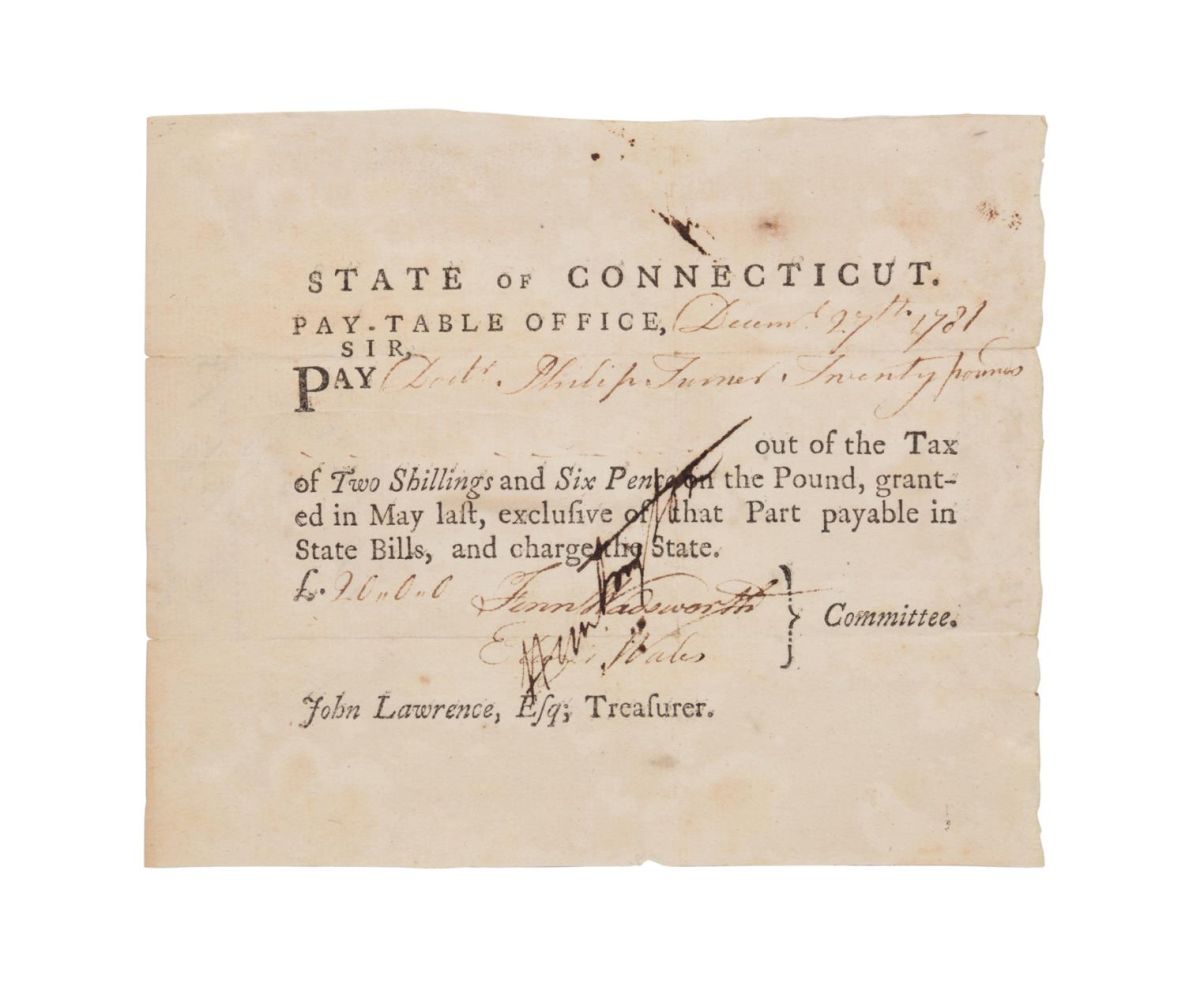 STATE OF CONNECTICUT.
PAY-TABLE OFFICE, Decemr 27th 1781
SIR,
PAY Doctr Philip Turner Twenty pounds
out of the Tax
of Two Shillings and Six Pence on the Pound, grant-
ed in May laſt, excluſive of that Part payable in
State Bills, and charge the State.
£.20..0..0 Fenn Wadsworth
Wales
} Committee.
John Lawrence, Eſq; Treaſurer.